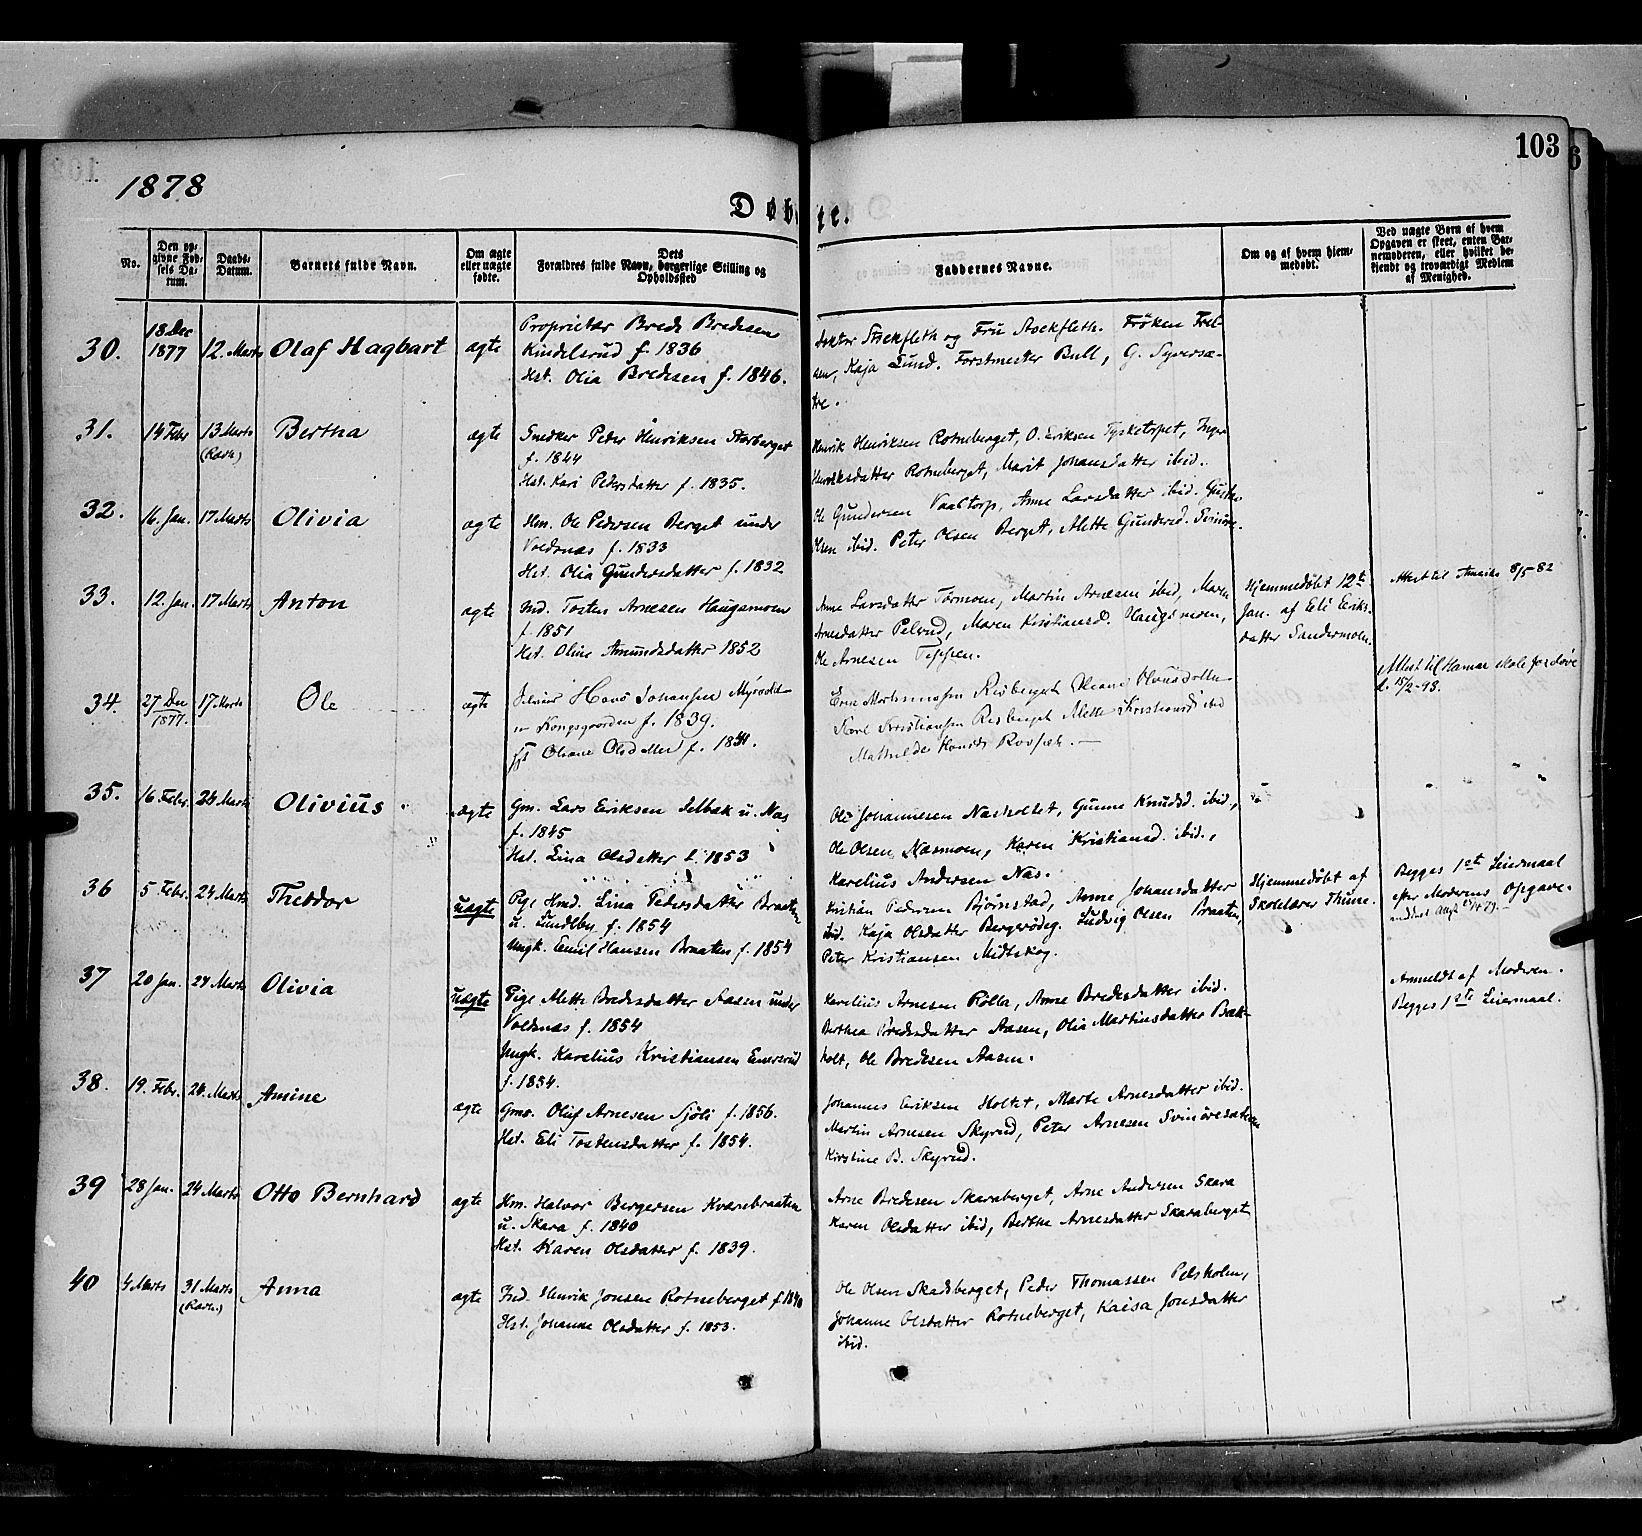 103
1878
Døbte.
No.
Den op-
givne Fød-
sels Da-
tum.
Daabs-
Datum.
Barnets fulde Navn.
Om ægte
eller uægte
fødte.
Dets
Forældres fulde Navn, borgerlige Stilling og
Opholdssted
Faddernes Navne.
Om og af hvem hjem-
medøbt.
Ved uægte Børn af hvem
Opgaven er skeet, enten Bar-
nemoderen, eller hvilket be-
kjendt og troværdigt Medlem
af Menighed.
30.
18 Dec
1877
12. Marts
Olaf Hagbart
ægte
Proprietær Brede Bredesen
Kindelsrud f. 1836
Hst. Olia Bredesen f. 1846.
Doktor Stockfleth og Fru Stockfleth. Frøken
Kaja Lund. Forstmester Bull, G. Syversæ-
tre.
31.
14 Febr
13 Marts
(Ravn)
Bertha
ægte
Snedker Peder Henriksen Storberget
f. 1844
Hst. Kari Pedersdatter f. 1835.
Henrik Henriksen Rotneberget, O. Eriksen Tysketorpet, Inger
Henriksdatter Rotneberget, Marit Johansdatter ibid.
32.
16. Jan.
17 Marts
Olivia
ægte
Hm. Ole Pedersen Berget under
Voldnæs f. 1833
Hst. Olia Gundersdatter f. 1832
Ole Gundersen Vaaltorp, Anne Larsdatter ibid.
Olsen ibid. Peter Olsen Berget, Alette Gundersd.
33.
12. Jan.
17 Marts
Anton
ægte
Ind. Tosten Arnesen Haugsmoen
f. 1851
Hst. Oline Amundsdatter 1852
Anne Larsdatter Tørmoen, Martin Arnesen ibid, Maren
Arnesdatter Pelrud, Maren Kristiansd. Haugsmoen,
Ole Arnesen Teppen.
Hjemmedøbt 12te
Jan. af Eli Eriks-
datter Sandermoen.
Attest til Amerika 8/5 82
34.
27 Dec
1877.
17. Marts
Ole
ægte
Hans Johansen
Kongsgaarden f. 1839.
Oleane Olsdatter f.
Karl Kristiansen Risberget Alette Kristiansd ibid
Mathilde
Attest til Hamar
d. 15/2-93.
35.
16 Febr.
24 Marts
Olivius
ægte
Gm. Lars Eriksen Selbæk u. Næs
f. 1845
Hst. Lina Olsdatter f. 1853
Ole Johannesen Næsholtet, Gunne Knudsd. ibid.,
Ole Olsen Næsmoen, Karen Kristiansd. ibid.,
Karelius Andersen Næs.
36
5 Febr.
24 Marts
Theodor
uægte
Pige Hmd. Lina Pedersdatter Braaten
u. Lundeby f. 1854
Ungk. Emil Hansen Braaten f. 1854
Kristian Pedersen Bjørnstad, Anne Johansdatter
ibid. Kaja Olsdatter Bergerødeg. Ludvig Olsen Braaten,
Peter Kristiansen Midtskog.
Hjemmedøbt af
Skolelærer Thune.
Begges 1ste Leiermaal
efter Moderens Opgave.
37
20 Jan.
24 Marts
Olivia
uægte
Pige Alette Bredesdatter Aasen under
Voldnæs f. 1854
Ungk. Karelius Kristiansen Emersrud
f. 1854.
Karelius Arnesen Rølla, Anne Bredesdatter ibid.
Berthea Bredesdatter Aasen, Olia Martinsdatter Bæk-
holt, Ole Bredesen Aasen.
Anmeldt af Moderen.
Begges 1ste Leiermaal.
38.
19. Febr.
24. Marts
Amine
ægte
Gmd. Oluf Arnesen Sjøli f. 1856.
Hst. Eli Tostensdatter f. 1854.
Johannes Eriksen Holtet, Marte Arnesdatter ibid.
Martin Arnesen Skyrud, Peter Arnesen Svinøresæteren
Kirstine B. Skyrud.
39
28 Jan.
24 Marts
Otto Bernhard
ægte
Hm. Halvor Bergersen Kværnbraaten
u. Skara f. 1840
Hst. Karen Olsdatter f. 1839.
Arne Bredesen Skaraberget, Arne Andersen Skara
Karen Olsdatter ibid, Berthe Arnesdatter Skaraberget
40
4 Marts
31 Marts
(Ravn)
Anna
ægte
Ind. Henrik Jonsen Rotneberget f. 1840
Hst. Johanne Olsdatter f. 1853.
Ole Olsen Skadsberget, Peder Thomassen Pelsholen,
Johanne Olsdatter Rotneberget, Kaisa Jonsdatter
ibid.